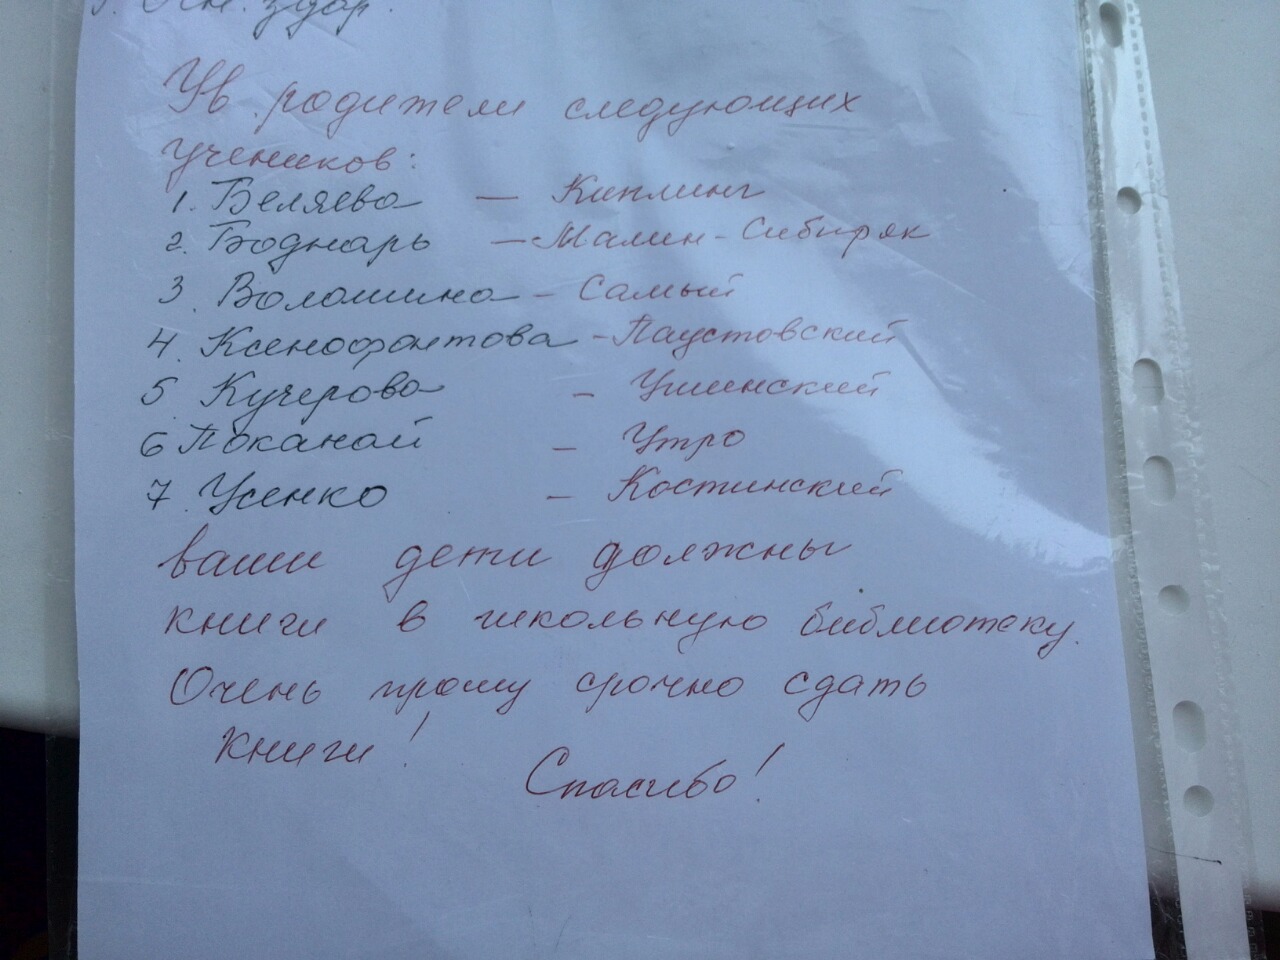 Ув родители следующих
учеников:
1. Беляева — Киплинг
2. Боднарь — Мамин-Сибиряк
3. Волошина - Самый
4. Ксенофонтова - Паустовский
5 Кучерова - Ушинский
6 Поканай - Утро
7. Усенко - Костинский
ваши дети должны
книги в школьную библиотеку.
Очень прошу срочно сдать
книги!
Спасибо!